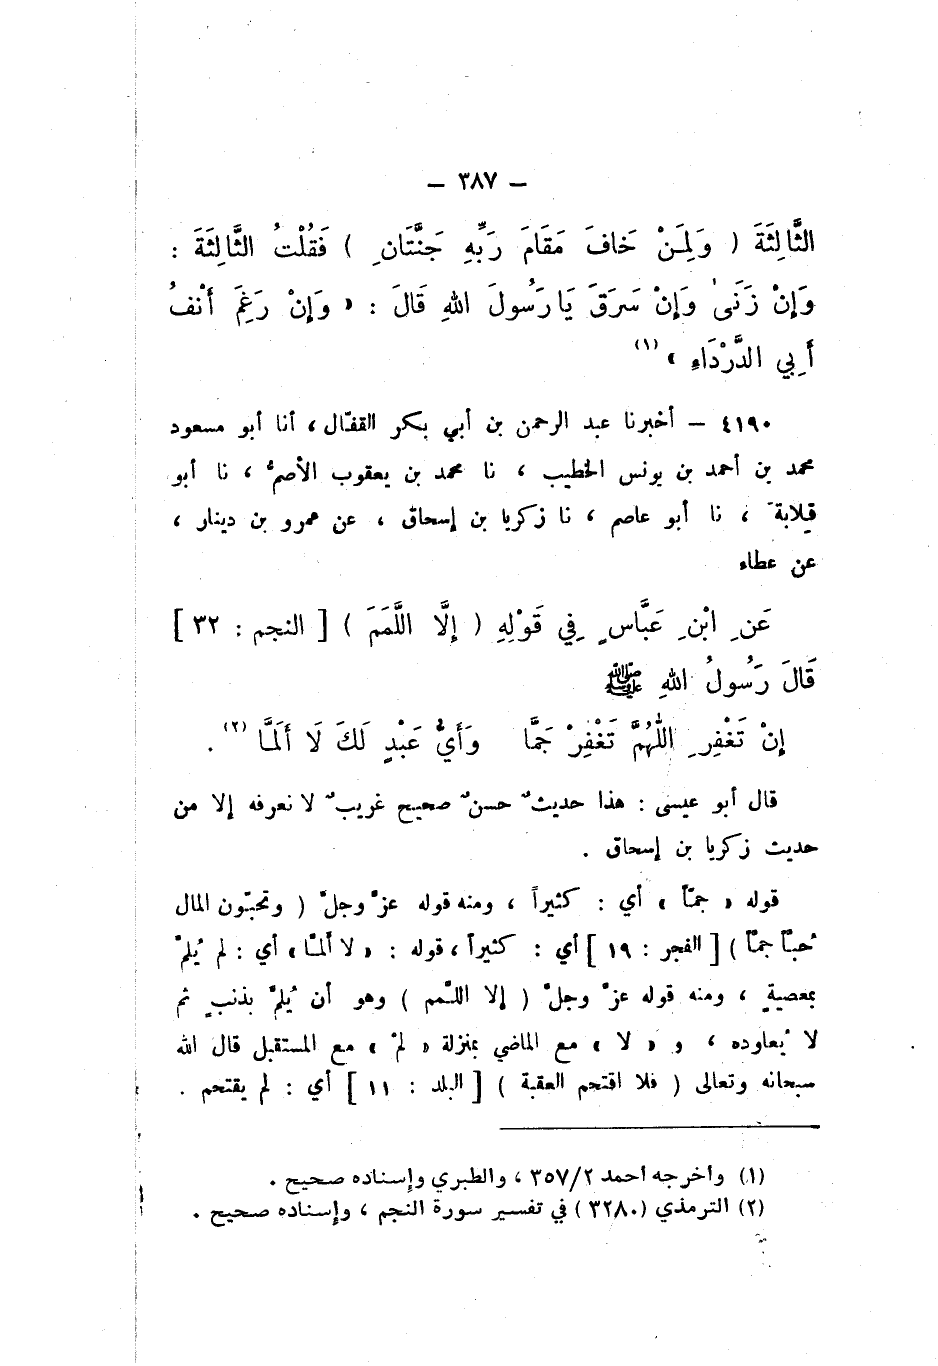 — ٣٨٧ —
الثَّالِثَةَ ( وَلِمَنْ خَافَ مَقَامَ رَبِّهِ جَنَّتَانِ ) فَقُلْتُ الثَّالِثَةَ :
وَإِنْ زَنَىٰ وَإِنْ سَرَقَ يَا رَسُولَ اللهِ قَالَ : « وَإِنْ رَغِمَ أَنْفُ
أَبِي الدَّرْدَاءِ » (١)
٤١٩٠ — أخبرنا عبد الرحمن بن أبي بكر القفّال ، أنا أبو مسعود
محمد بن أحمد بن يونس الخطيب ، نا محمد بن يعقوب الأصمُّ ، نا أبو
قِلابةَ ، نا أبو عاصم ، نا زكريا بن إسحاق ، عن عمرو بن دينار ،
عن عطاء
عَنِ ابْنِ عَبَّاسٍ فِي قَوْلِهِ ( إِلَّا اللَّمَمَ ) [ النجم : ٣٢ ]
قَالَ رَسُولُ اللهِ ﷺ
إِنْ تَغْفِرِ اللَّهُمَّ تَغْفِرْ جَمَّا وَأَيُّ عَبْدٍ لَكَ لَا أَلَمَّا (٢) .
قال أبو عيسى : هذا حديثٌ حسنٌ صحيح غريبٌ لا نعرفه إلا من
حديث زكريا بن إسحاق .
قوله « جمّاً » أي : كثيراً ، ومنه قوله عزَّ وجلَّ ( وتحبّون المال
حُبّاً جمّاً ) [ الفجر : ١٩ ] أي : كثيراً ، قوله : « لا أَلمّا » أي : لم يُلِمَّ
بمعصيةٍ ، ومنه قوله عزَّ وجلَّ ( إلا اللّمم ) وهو أن يُلِمَّ بذنبٍ ثم
لا يُعاوده ، و « لا » مع الماضي بمنزلة « لمْ » مع المستقبل قال الله
سبحانه وتعالى ( فلا اقتحم العقبة ) [ البلد : ١١ ] أي : لم يقتحم .
(١) وأخرجه أحمد ٣٥٧/٢ ، والطبري وإسناده صحيح .
(٢) الترمذي (٣٢٨٠) في تفسير سورة النجم ، وإسناده صحيح .